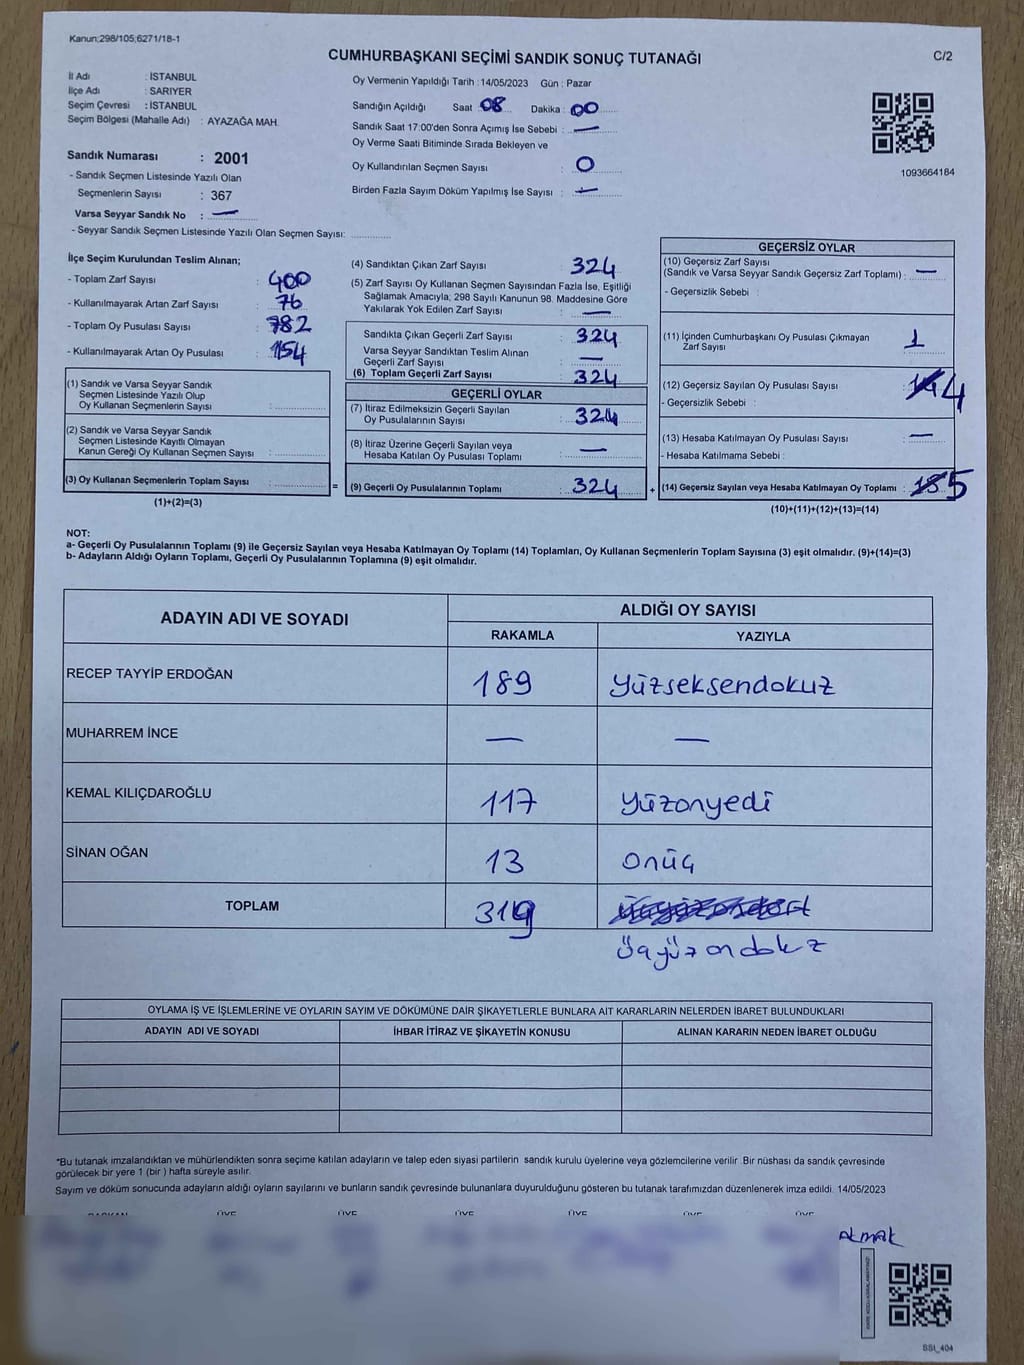 Kanun;298/105;6271/18-1
CUMHURBAŞKANI SEÇİMİ SANDIK SONUÇ TUTANAĞI
C/2
İl Adı : İSTANBUL
İlçe Adı : SARIYER
Seçim Çevresi : İSTANBUL
Seçim Bölgesi (Mahalle Adı) : AYAZAĞA MAH.
Sandık Numarası : 2001
- Sandık Seçmen Listesinde Yazılı Olan
Seçmenlerin Sayısı : 367
Varsa Seyyar Sandık No : —
- Seyyar Sandık Seçmen Listesinde Yazılı Olan Seçmen Sayısı: ............
Oy Vermenin Yapıldığı Tarih : 14/05/2023 Gün : Pazar
Sandığın Açıldığı Saat 08 Dakika : 00
Sandık Saat 17:00'den Sonra Açımış İse Sebebi : —
Oy Verme Saati Bitiminde Sırada Bekleyen ve
Oy Kullandırılan Seçmen Sayısı : 0
Birden Fazla Sayım Döküm Yapılmış İse Sayısı : —
1093664184
İlçe Seçim Kurulundan Teslim Alınan;
- Toplam Zarf Sayısı : 400
- Kullanılmayarak Artan Zarf Sayısı : 76
- Toplam Oy Pusulası Sayısı : 782
- Kullanılmayarak Artan Oy Pusulası : 154
(1) Sandık ve Varsa Seyyar Sandık
Seçmen Listesinde Yazılı Olup
Oy Kullanan Seçmenlerin Sayısı : ............
(2) Sandık ve Varsa Seyyar Sandık
Seçmen Listesinde Kayıtlı Olmayan
Kanun Gereği Oy Kullanan Seçmen Sayısı : ............
(3) Oy Kullanan Seçmenlerin Toplam Sayısı : ............
(1)+(2)=(3)
=
(4) Sandıktan Çıkan Zarf Sayısı : 324
(5) Zarf Sayısı Oy Kullanan Seçmen Sayısından Fazla İse, Eşitliği
Sağlamak Amacıyla, 298 Sayılı Kanunun 98. Maddesine Göre
Yakılarak Yok Edilen Zarf Sayısı : —
Sandıkta Çıkan Geçerli Zarf Sayısı : 324
Varsa Seyyar Sandıktan Teslim Alınan
Geçerli Zarf Sayısı : —
(6) Toplam Geçerli Zarf Sayısı : 324
GEÇERLİ OYLAR
(7) İtiraz Edilmeksizin Geçerli Sayılan
Oy Pusulalarının Sayısı : 324
(8) İtiraz Üzerine Geçerli Sayılan veya
Hesaba Katılan Oy Pusulası Toplamı : —
(9) Geçerli Oy Pusulalarının Toplamı : 324
+
GEÇERSİZ OYLAR
(10) Geçersiz Zarf Sayısı
(Sandık ve Varsa Seyyar Sandık Geçersiz Zarf Toplamı) : —
- Geçersizlik Sebebi :
(11) İçinden Cumhurbaşkanı Oy Pusulası Çıkmayan
Zarf Sayısı : 1
(12) Geçersiz Sayılan Oy Pusulası Sayısı : 4
- Geçersizlik Sebebi :
(13) Hesaba Katılmayan Oy Pusulası Sayısı : —
- Hesaba Katılmama Sebebi :
(14) Geçersiz Sayılan veya Hesaba Katılmayan Oy Toplamı : 5
(10)+(11)+(12)+(13)=(14)
NOT:
a- Geçerli Oy Pusulalarının Toplamı (9) ile Geçersiz Sayılan veya Hesaba Katılmayan Oy Toplamı (14) Toplamları, Oy Kullanan Seçmenlerin Toplam Sayısına (3) eşit olmalıdır. (9)+(14)=(3)
b- Adayların Aldığı Oyların Toplamı, Geçerli Oy Pusulalarının Toplamına (9) eşit olmalıdır.
ADAYIN ADI VE SOYADI
ALDIĞI OY SAYISI
RAKAMLA YAZIYLA
RECEP TAYYİP ERDOĞAN 189 yüzseksendokuz
MUHARREM İNCE — —
KEMAL KILIÇDAROĞLU 117 yüzonyedi
SİNAN OĞAN 13 onüç
TOPLAM 319
üçyüzondokuz
OYLAMA İŞ VE İŞLEMLERİNE VE OYLARIN SAYIM VE DÖKÜMÜNE DAİR ŞİKAYETLERLE BUNLARA AİT KARARLARIN NELERDEN İBARET BULUNDUKLARI
ADAYIN ADI VE SOYADI İHBAR İTİRAZ VE ŞİKAYETİN KONUSU ALINAN KARARIN NEDEN İBARET OLDUĞU
*Bu tutanak imzalandıktan ve mühürlendikten sonra seçime katılan adayların ve talep eden siyasi partilerin sandık kurulu üyelerine veya gözlemcilerine verilir .Bir nüshası da sandık çevresinde
görülecek bir yere 1 (bir ) hafta süreyle asılır.
Sayım ve döküm sonucunda adayların aldığı oyların sayılarını ve bunların sandık çevresinde bulunanlara duyurulduğunu gösteren bu tutanak tarafımızdan düzenlenerek imza edildi. 14/05/2023
BAŞKAN ÜYE ÜYE ÜYE ÜYE ÜYE ÜYE
SSI_404